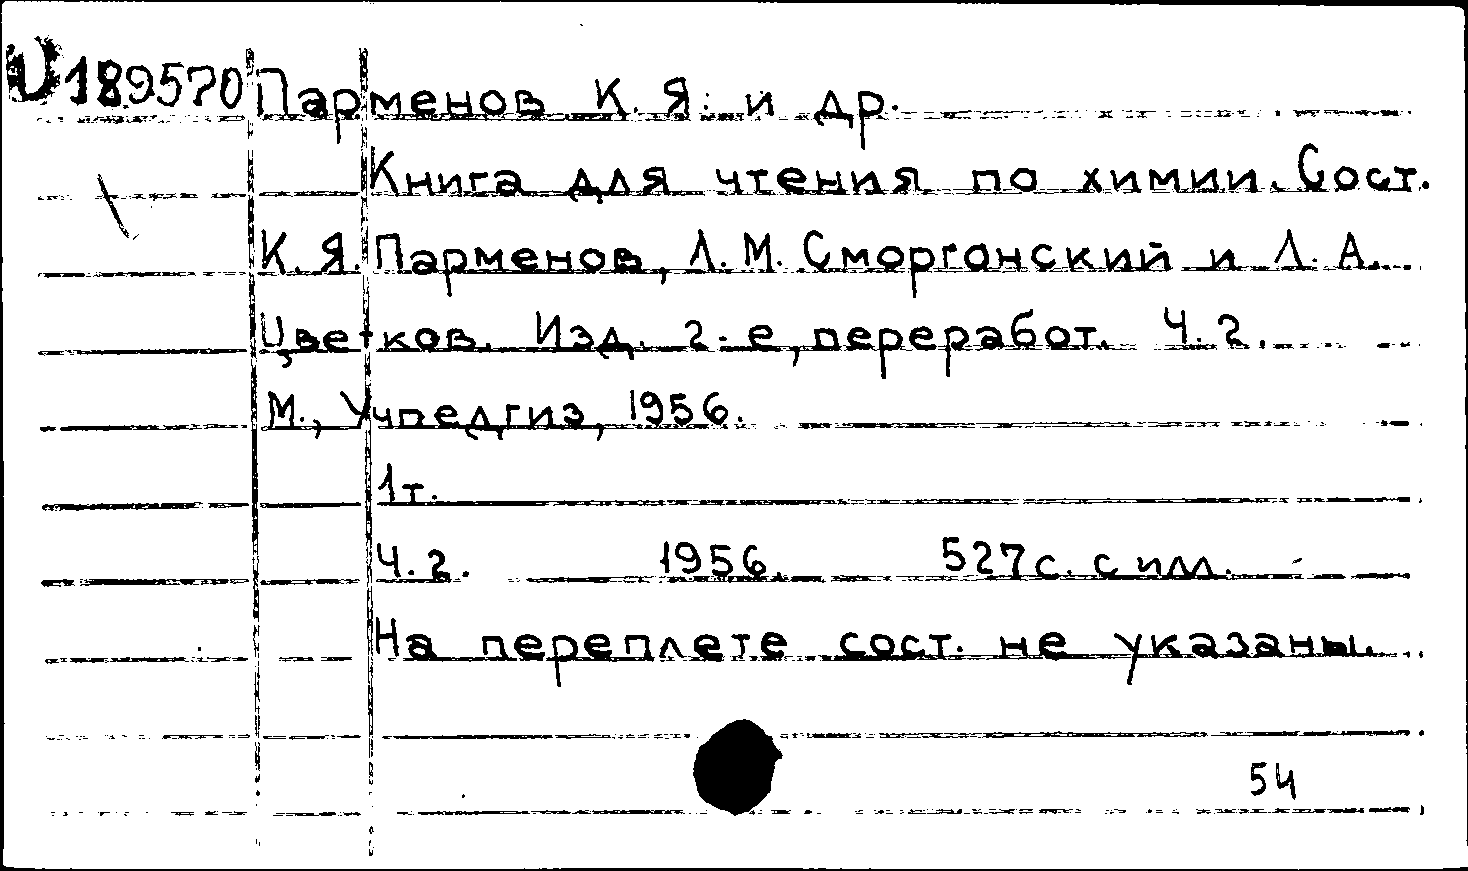 U189570 Парменов К. Я. и др.
Книга для чтения по химии. Сост.
К. Я. Парменов, Л. М. Сморгонский и Л. А.
Цветков. Изд. 2-е, переработ. Ч. 2.
М., Учпедгиз, 1956.
1т.
Ч. 2. 1956. 527с. с илл.
На переплете сост. не указаны.
54